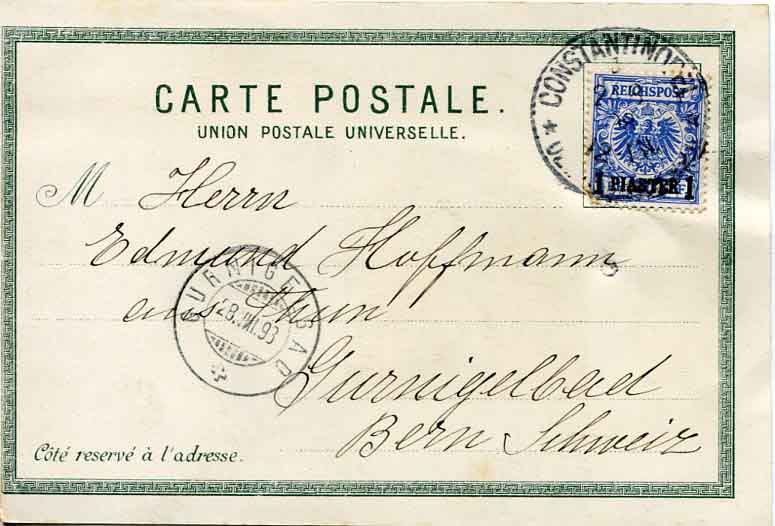 CONSTANTINOPEL
REICHSPOST
1 PIASTER 1
CARTE POSTALE.
UNION POSTALE UNIVERSELLE.
M Herrn
Edmund Hoffmann
aus Thun
GURNIGELBAD
28.VIII.93
Gurnigelbad
Bern Schweiz
Côté reservé à l'adresse.